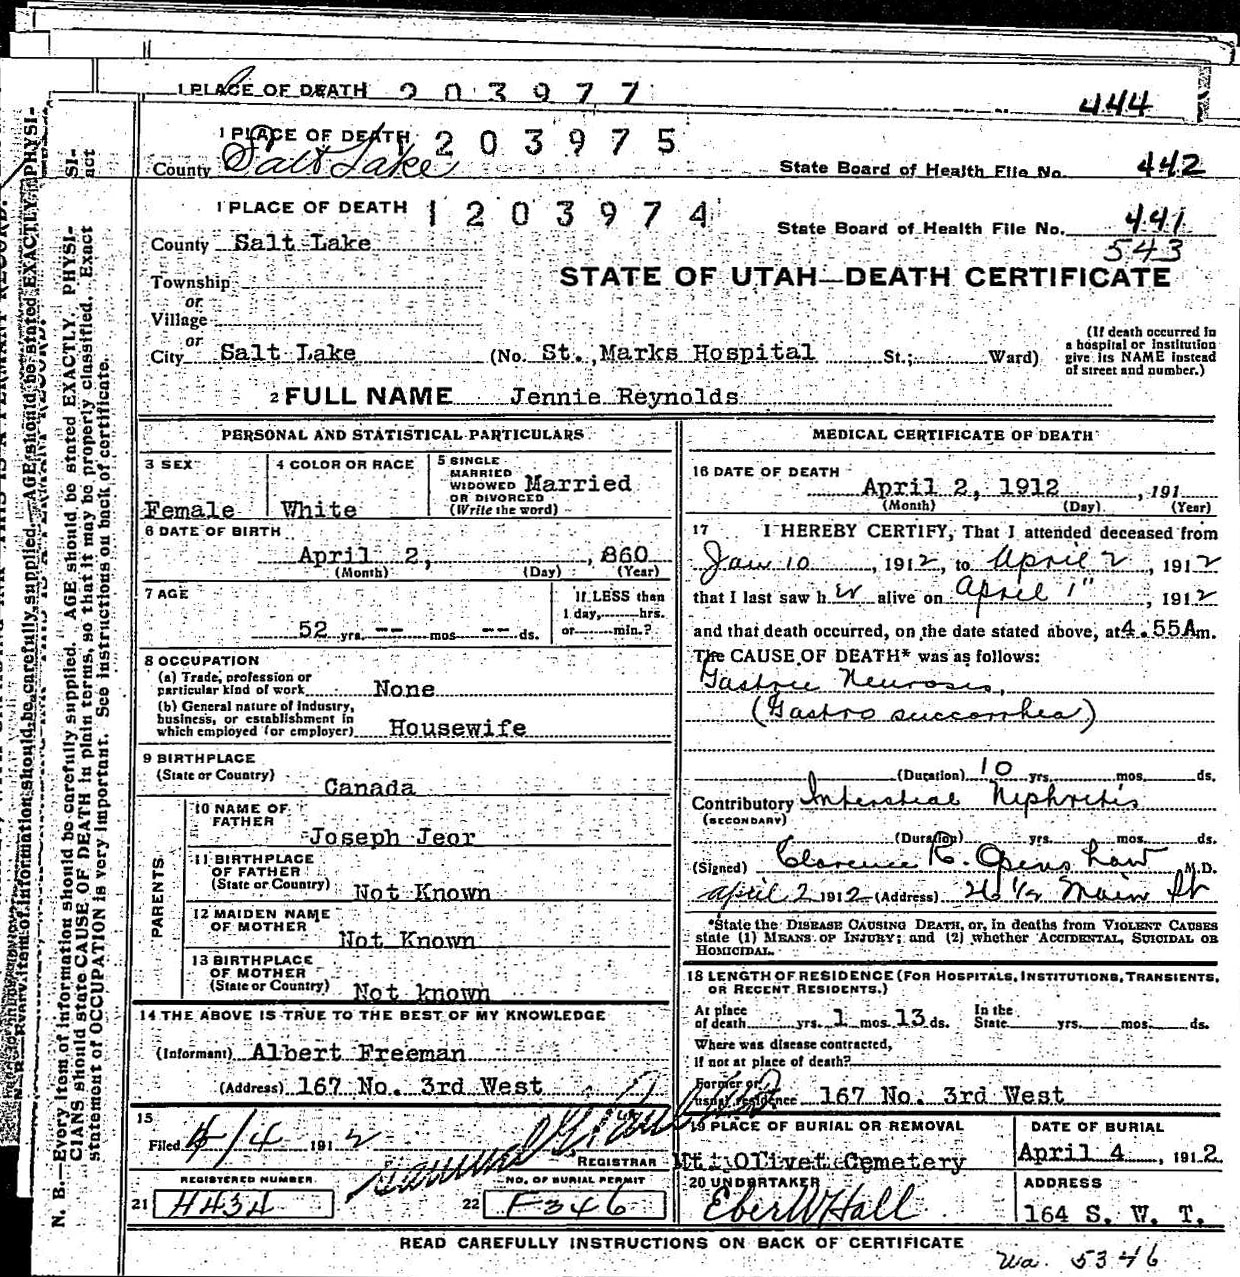 1 PLACE OF DEATH 203977
444
1 PLACE OF DEATH 1203975
County Salt Lake
State Board of Health File No. 442
1 PLACE OF DEATH 1203974
State Board of Health File No. 441
543
County Salt Lake
STATE OF UTAH—DEATH CERTIFICATE
Township
or
Village
or
City Salt Lake (No. St. Marks Hospital St.; Ward)
(If death occurred in
a hospital or institution
give its NAME instead
of street and number.)
2 FULL NAME Jennie Reynolds
PERSONAL AND STATISTICAL PARTICULARS
3 SEX
Female
4 COLOR OR RACE
White
5 SINGLE
MARRIED
WIDOWED
OR DIVORCED
(Write the word)
Married
6 DATE OF BIRTH
April 2, , 860
(Month) (Day) (Year)
7 AGE
52 yrs. -- mos. -- ds.
If LESS than
1 day, hrs.
or min.?
8 OCCUPATION
(a) Trade, profession or
particular kind of work None
(b) General nature of industry,
business, or establishment in
which employed (or employer) Housewife
9 BIRTHPLACE
(State or Country)
Canada
PARENTS
10 NAME OF
FATHER
Joseph Jeor
11 BIRTHPLACE
OF FATHER
(State or Country) Not Known
12 MAIDEN NAME
OF MOTHER
Not Known
13 BIRTHPLACE
OF MOTHER
(State or Country) Not known
14 THE ABOVE IS TRUE TO THE BEST OF MY KNOWLEDGE
(Informant) Albert Freeman
(Address) 167 No. 3rd West
15
Filed 4/4 1912
REGISTRAR
REGISTERED NUMBER
21 H434
NO. OF BURIAL PERMIT
22 F346
MEDICAL CERTIFICATE OF DEATH
16 DATE OF DEATH
April 2, 1912 , 191
(Month) (Day) (Year)
17 I HEREBY CERTIFY, That I attended deceased from
Jan 10 , 1912, to April 2 , 1912
that I last saw her alive on April 1" , 1912
and that death occurred, on the date stated above, at 4.55Am.
The CAUSE OF DEATH* was as follows:
Gastric Neurosis,
(Gastro succorrhea)
(Duration) 10 yrs. mos. ds.
Contributory Interstial Nephritis
(SECONDARY)
(Duration) yrs. mos. ds.
(Signed) Clarence K. Openshaw M.D.
April 2 1912 (Address) 26 1/2 Main St
*State the DISEASE CAUSING DEATH, or, in deaths from VIOLENT CAUSES
state (1) MEANS OF INJURY; and (2) whether ACCIDENTAL, SUICIDAL OR
HOMICIDAL.
18 LENGTH OF RESIDENCE (FOR HOSPITALS, INSTITUTIONS, TRANSIENTS,
OR RECENT RESIDENTS.)
At place
of death yrs. 1 mos. 13 ds.
In the
State yrs. mos. ds.
Where was disease contracted,
if not at place of death?
Former or
usual residence 167 No. 3rd West
19 PLACE OF BURIAL OR REMOVAL
Mt. Olivet Cemetery
DATE OF BURIAL
April 4 , 1912
20 UNDERTAKER
Eber W Hall
ADDRESS
164 S. W. T.
READ CAREFULLY INSTRUCTIONS ON BACK OF CERTIFICATE
Wa. 5346
N. B.—Every item of information should be carefully supplied. AGE should be stated EXACTLY. PHYSI-
CIANS should state CAUSE OF DEATH in plain terms, so that it may be properly classified. Exact
statement of OCCUPATION is very important. See instructions on back of certificate.